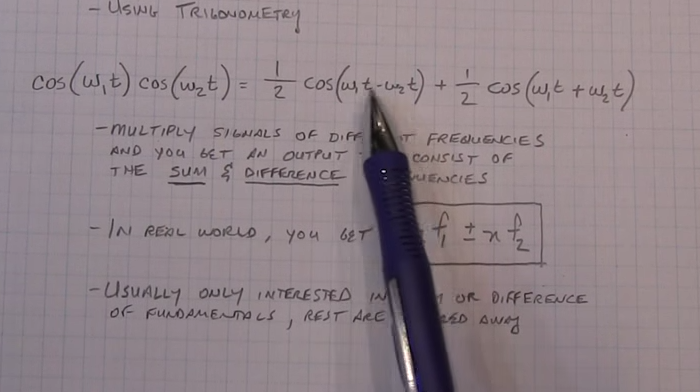 - USING TRIGONOMETRY
cos(ω₁t) cos(ω₂t) = 1/2 cos(ω₁t - ω₂t) + 1/2 cos(ω₁t + ω₂t)
- MULTIPLY SIGNALS OF DIFFERENT FREQUENCIES
AND YOU GET AN OUTPUT CONSIST OF
THE SUM & DIFFERENCE
- IN REAL WORLD, YOU GET f₁ ± n f₂
- USUALLY ONLY INTERESTED IN OR DIFFERENCE
OF FUNDAMENTALS, REST ARE AWAY